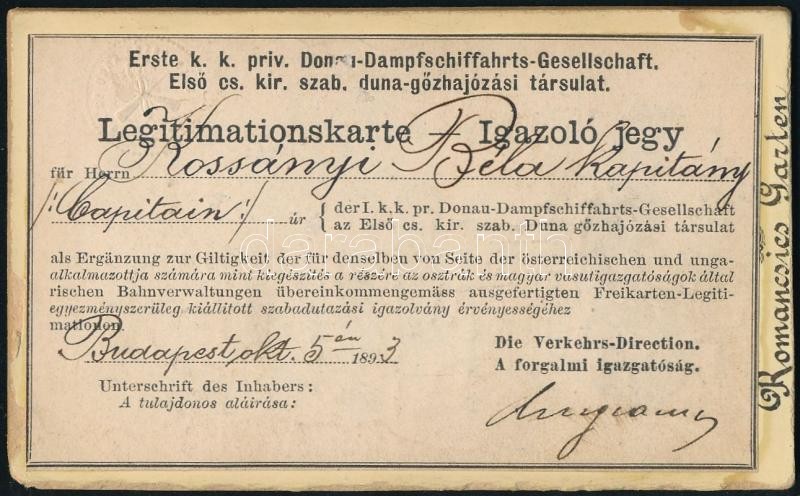 Erste k. k. priv. Donau-Dampfschiffahrts-Gesellschaft.
Első cs. kir. szab. duna-gőzhajózási társulat.
Legitimationskarte – Igazoló jegy
für Herrn Kossányi Béla kapitány
/: Capitain :/ úr { der I. k. k. pr. Donau-Dampfschiffahrts-Gesellschaft
az Első cs. kir. szab. Duna gőzhajózási társulat
als Ergänzung zur Giltigkeit der für denselben von Seite der österreichischen und unga-
alkalmazottja számára mint kiegészítés a részére az osztrák és magyar vasutigazgatóságok által
rischen Bahnverwaltungen übereinkommengemäss ausgefertigten Freikarten-Legiti-
egyezményszerüleg kiállitott szabadutazási igazolvány érvényességéhez
mationen.
Budapest, okt. 5én 1893
Die Verkehrs-Direction.
A forgalmi igazgatóság.
Unterschrift des Inhabers:
A tulajdonos aláirása:
Romancsics Garten
darabanth